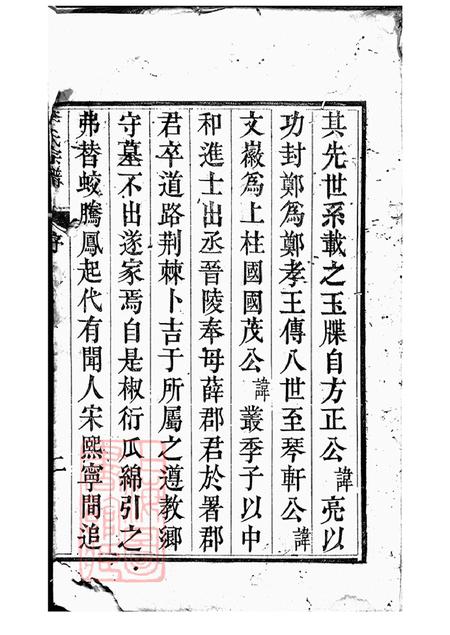 其先世系載之玉牒自方正公諱亮以
功封鄭為鄭孝王傳八世至琴軒公諱
文巖為上柱國國茂公諱叢季子以中
和進士出丞晉陵奉母薛郡君於署郡
君卒道路荆棘卜吉于所屬之遵教鄉
守墓不出遂家焉自是椒衍瓜綿引之
弗替蛟騰鳳起代有聞人宋熙寧間追
氏宗譜
序